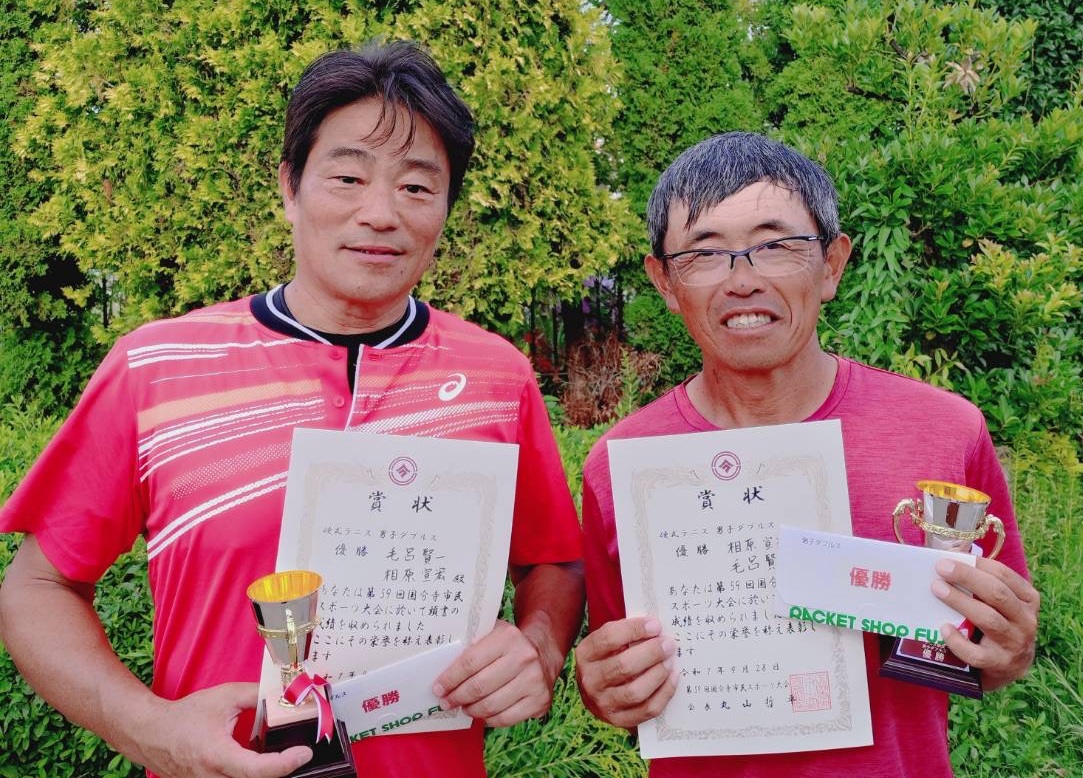 賞状
硬式テニス 男子ダブルス
優勝 毛呂賢一
相原宣宏 殿
あなたは第59回国分寺市民
スポーツ大会に於いて頭書の
成績を収められました
ここにその栄誉を称え表彰し
ます
令和7年
ダブルス
優勝
RACKET SHOP FUJ
賞状
硬式テニス 男子ダブルス
優勝 相原宣
毛呂賢
あなたは第59回国分寺
スポーツ大会に於いて
成績を収められました
ここにその栄誉を称え表彰し
ます
令和7年9月28日
第59回国分寺市民スポーツ大会
会長 丸山哲平
男子ダブルス
優勝
RACKET SHOP FUJ
優勝